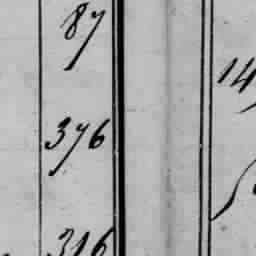 87
376
316
14